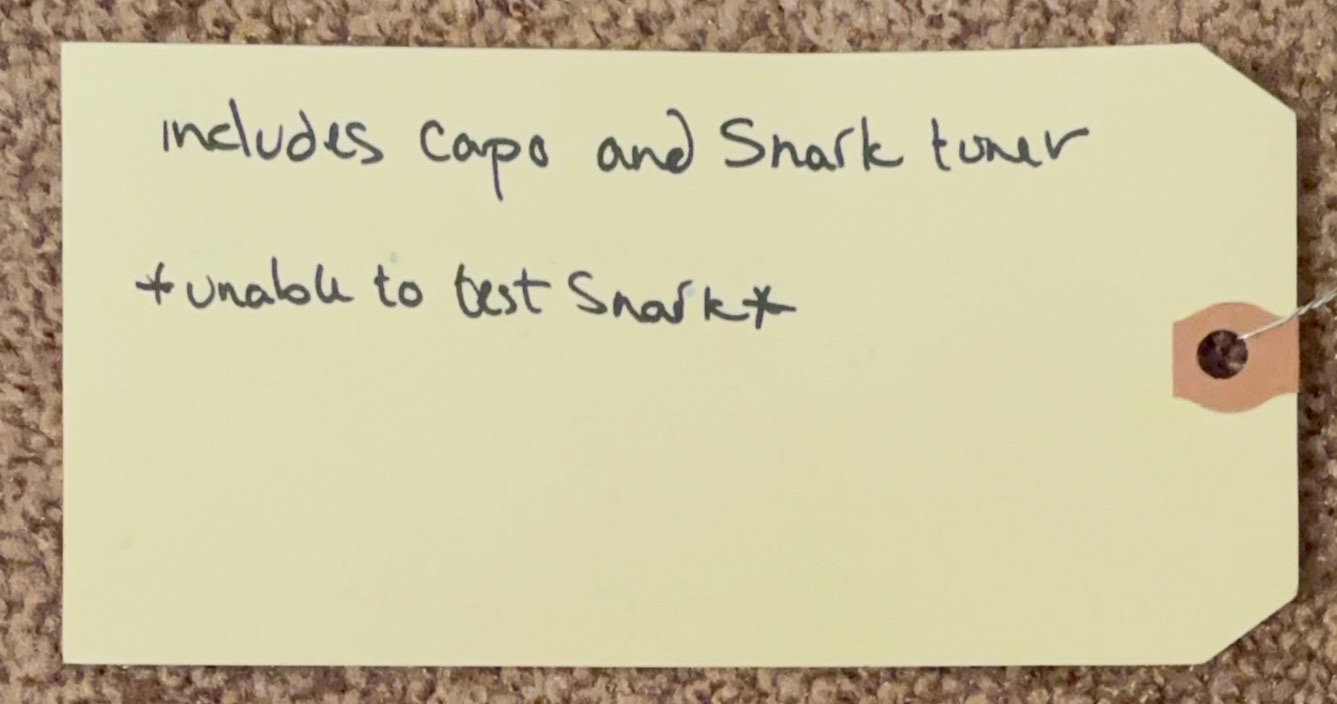 includes capo and Snark tuner
*unable to test Snark*